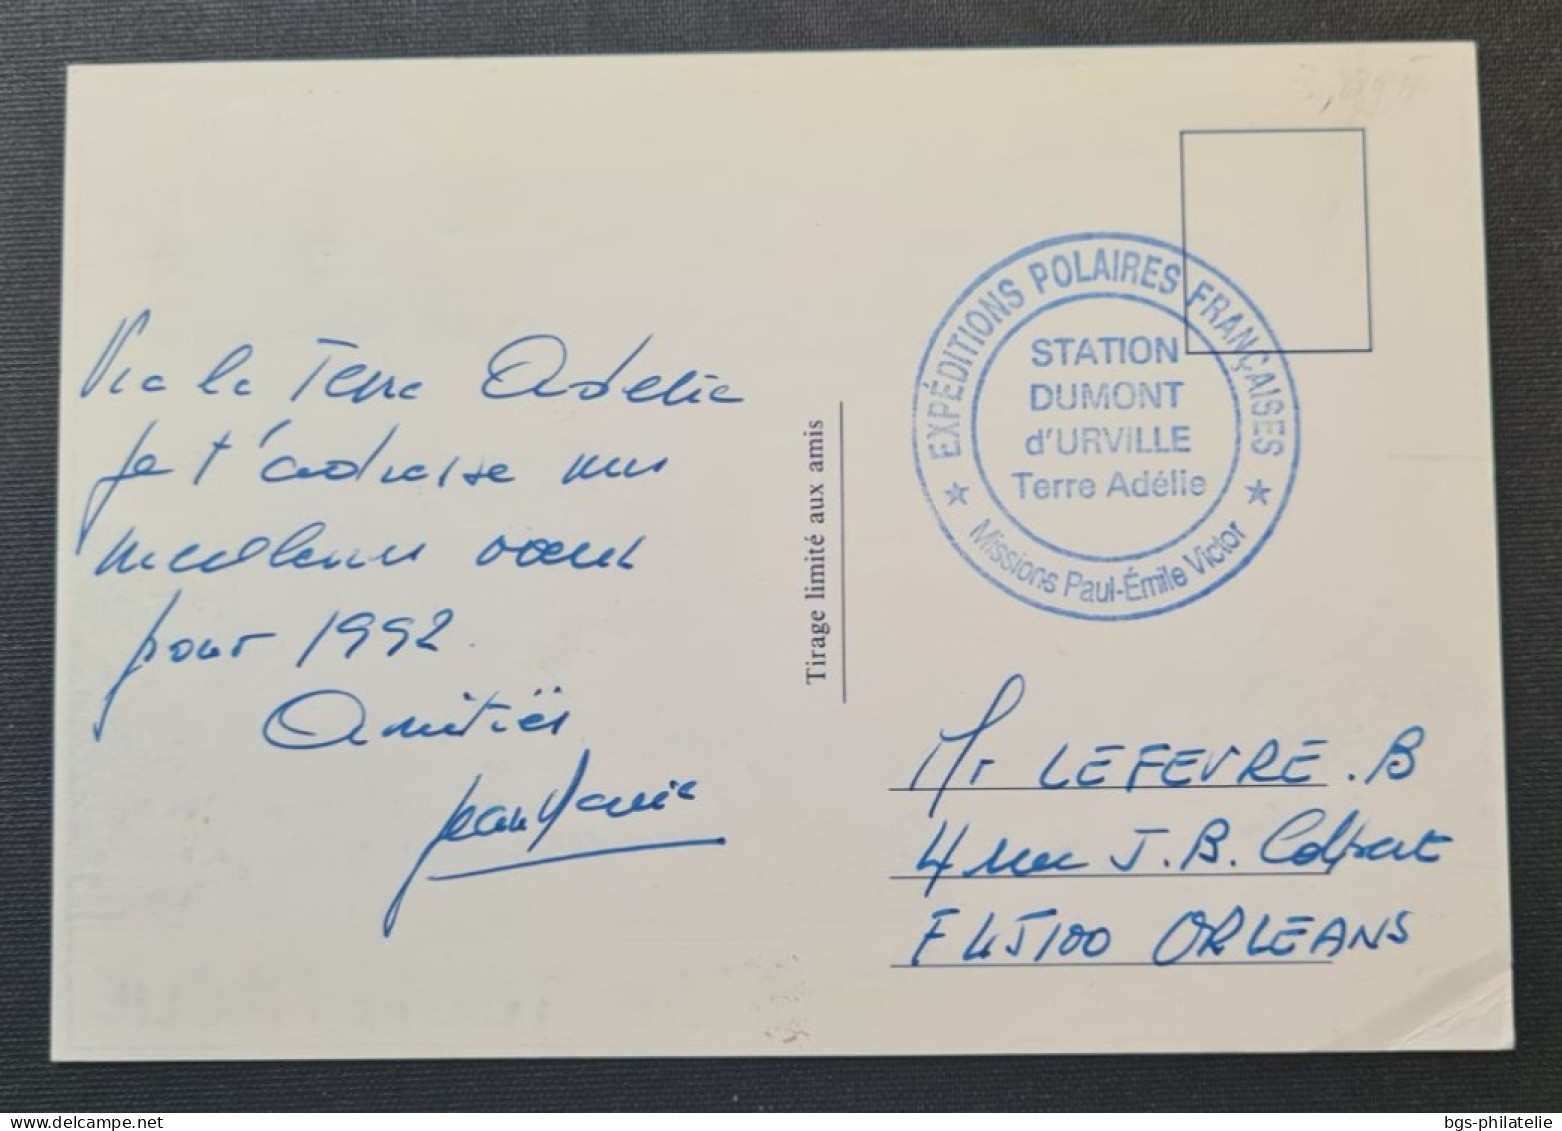 Via la Terre Adelie
je t'adresse mes
meilleurs voeux
pour 1992.
Amitiés
Jean Marie
Tirage limité aux amis
EXPÉDITIONS POLAIRES FRANÇAISES
STATION
DUMONT
d'URVILLE
Terre Adélie
Missions Paul-Émile Victor
Mr LEFEVRE. B
4 rue J. B. Colbert
F 45100 ORLEANS
bgs-philatelie